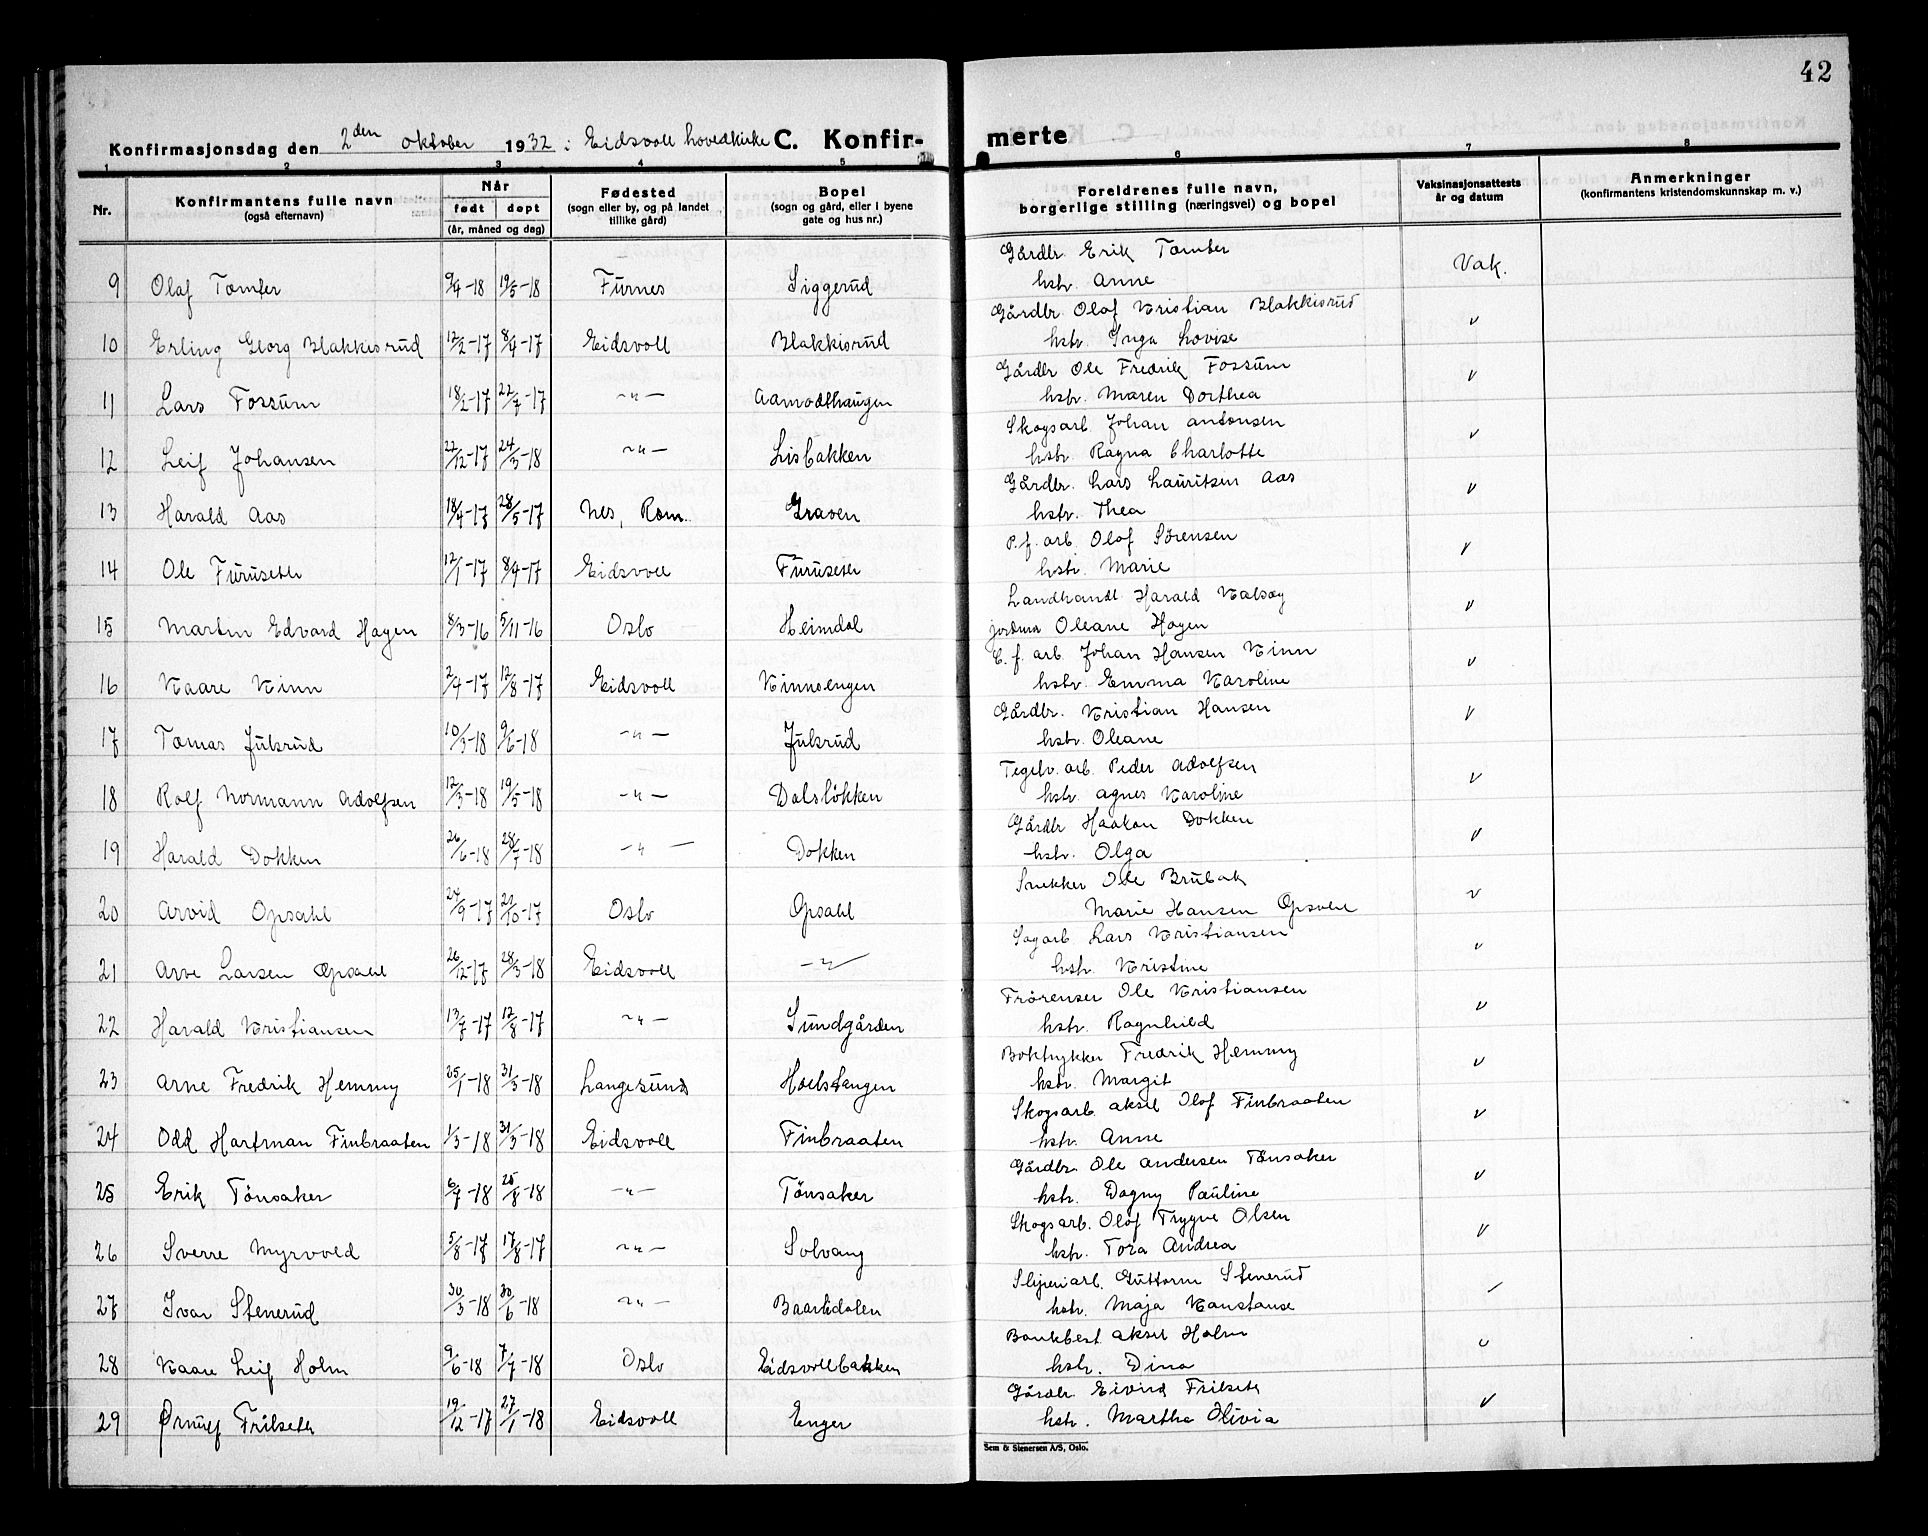 42
Konfirmasjonsdag den 2den oktober 1932 i Eidsvoll hovedkirke C. Konfir- merte
1 2 3 4 5 6 7 8
Nr. Konfirmantens fulle navn (også efternavn) Når født døpt (år, måned og dag) Fødested (sogn eller by, og på landet tillike gård) Bopel (sogn og gård, eller i byene gate og hus nr.) Foreldrenes fulle navn, borgerlige stilling (næringsvei) og bopel Vaksinasjonsattests år og datum Anmerkninger (konfirmantens kristendomskunnskap m. v.)
Gårdbr. Erik Tomter
9 Olaf Tomter 9/4-18 19/5-18 Furnes Siggerud hstr. Anne Vak.
Gårdbr. Olaf Kristian Blakkisrud
10 Erling Georg Blakkisrud 12/2-17 8/4-17 Eidsvoll Blakkisrud hstr. Inga Lovise v
Gårdbr Ole Fredrik Fossum
11 Lars Fossum 18/2-17 22/7-17 -"- Aamodthaugen hstr. Maren Dorthea v
Skogsarb. Johan Antonsen
12 Leif Johansen 22/12-17 24/3-18 -"- Lisbakken hstr. Ragna Charlotte v
Gårdbr. Lars Lauritsen Aas
13 Harald Aas 18/4-17 28/5-17 Nes, Rom. Graven hstr. Thea v
P.f. arb. Olaf Sørensen
14 Ole Furuseth 12/1-17 8/4-17 Eidsvoll Furuseth hstr. Marie v
Landhandl. Harald Kalsøy
15 Martin Edvard Hagen 8/3-16 5/11-16 Oslo Heimdal jordma Oleane Hagen v
C. f. arb. Johan Hansen Kinn
16 Kaare Kinn 2/4-17 12/8-17 Eidsvoll Kinnsengen hstr. Emma Karoline v
Gårdbr. Kristian Hansen
17 Tomas Julsrud 10/3-18 9/6-18 -"- Julsrud hstr. Oleane v
Teglv. arb. Peder Adolfsen
18 Rolf Normann Adolfsen 12/3-18 19/5-18 -"- Dalsløkken hstr. Agnes Karoline v
Gårdbr Haakon Dokken
19 Harald Dokken 26/6-18 28/7-18 -"- Dokken hstr. Olga v
Snekker Ole Brubak
20 Arvid Opsahl 24/9-17 21/10-17 Oslo Opsahl Marie Hansen v
Sagarb Lars Kristiansen
21 Arve Larsen Opsahl 26/12-17 28/3-18 Eidsvoll -"- hstr. Kristine v
Ole Kristiansen
22 Harald Kristiansen 13/7-17 12/8-17 -"- Sundgården hstr. Ragnhild v
Boktrykker Fredrik Hemmy
23 Arne Fredrik Hemmy 25/1-18 31/3-18 Langesund Hoelstangen hstr. Margit v
Skogsarb. Aksel Olaf Finbraaten
24 Odd Hartman Finbraaten 1/3-18 31/3-18 Eidsvoll Finbraaten hstr. Anne v
Gårdbr. Ole Andersen Tønsaker
25 Erik Tønsaker 6/7-18 25/8-18 -"- Tønsaker hstr. Dagny Pauline v
Skogsarb. Olaf Trygve Olsen
26 Sverre Myrvold 5/8-17 17/8-17 -"- Solvang hstr. Tora Andrea v
Sliperiarb. Guttorm Stenerud
27 Ivar Stenerud 30/3-18 30/6-18 -"- Baardsdalen hstr. Maja Konstanse
Bankbest. Aksel Holm
28 Kaare Leif Holm 9/6-18 7/7-18 Oslo Eidsvollbakken hstr. Dina v
Gårdbr. Eivind Frilseth
29 Ørnulf Frilseth 19/12-17 27/1-18 Eidsvoll Enger hstr. Martha Olivia v
Sem & Stenersen A/S, Oslo.